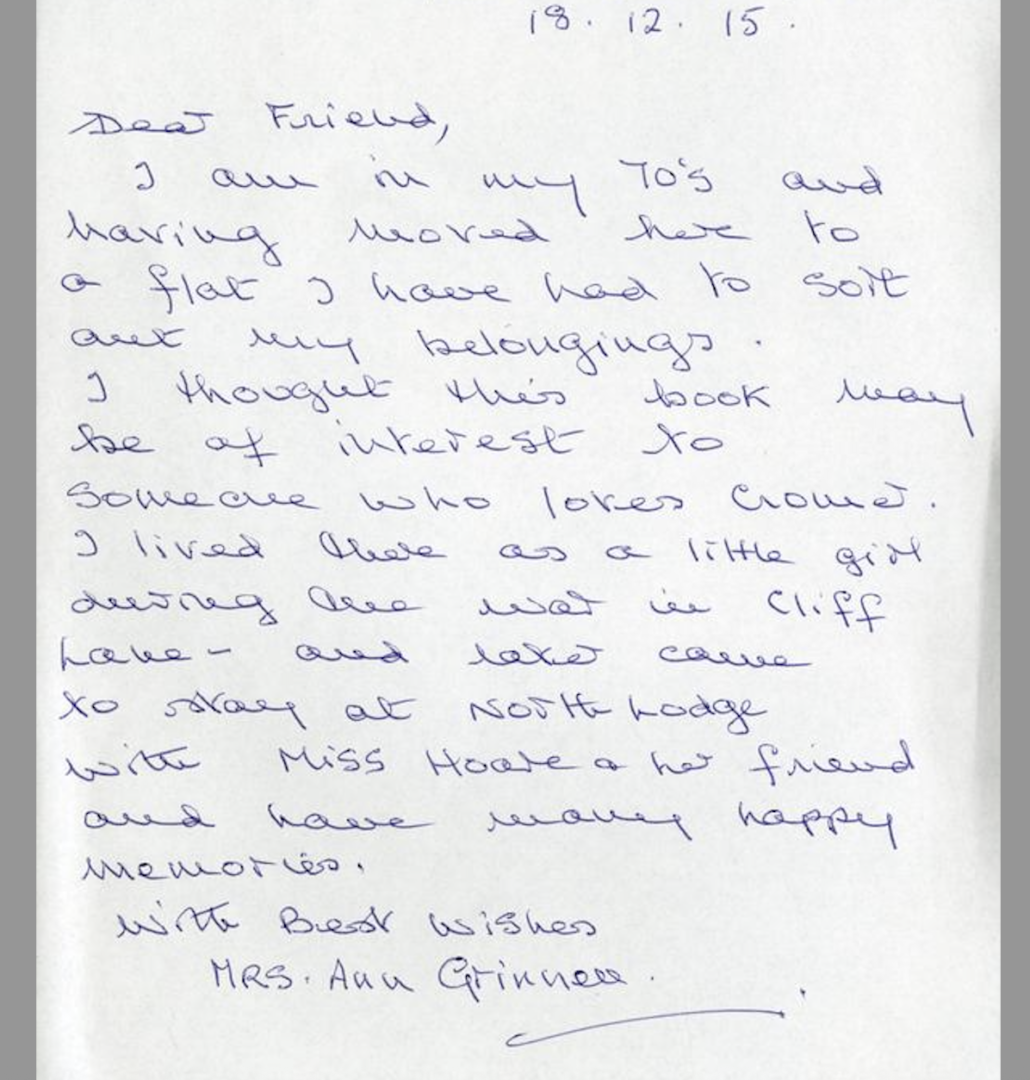 18. 12. 15.
Dear Friend,
I am in my 70's and
having moved here to
a flat I have had to sort
out my belongings.
I thought this book may
be of interest to
someone who loves Cromer.
I lived there as a little girl
during the war in Cliff
Lane - and later came
to stay at North Lodge
with Miss Hoare & her friend
and have many happy
memories.
With Best Wishes
MRS. Ann Grinnell.